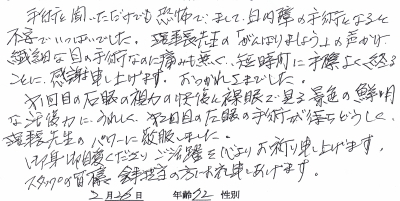 手術と聞いただけでも恐怖でしまして白内障の手術となると
不安でいっぱいでした。理事長先生の「がんばりましょう」の声かけ
繊細な目の手術なのに痛みも無く、短時間に手際よく終る
ことに、感謝申し上げます。おつかれさまでした。
第1回目の右眼の視力の快復に裸眼で見る景色の鮮明
な活復力に、うれしく、第2回目の右眼の手術が待ちどうしく、
理事長先生のパワーに敬服しました。
ご活躍を心よりお祈り申し上げます。
スタッフの皆様 担当の方にお礼申しあげます。
2月25日 年齢72 性別